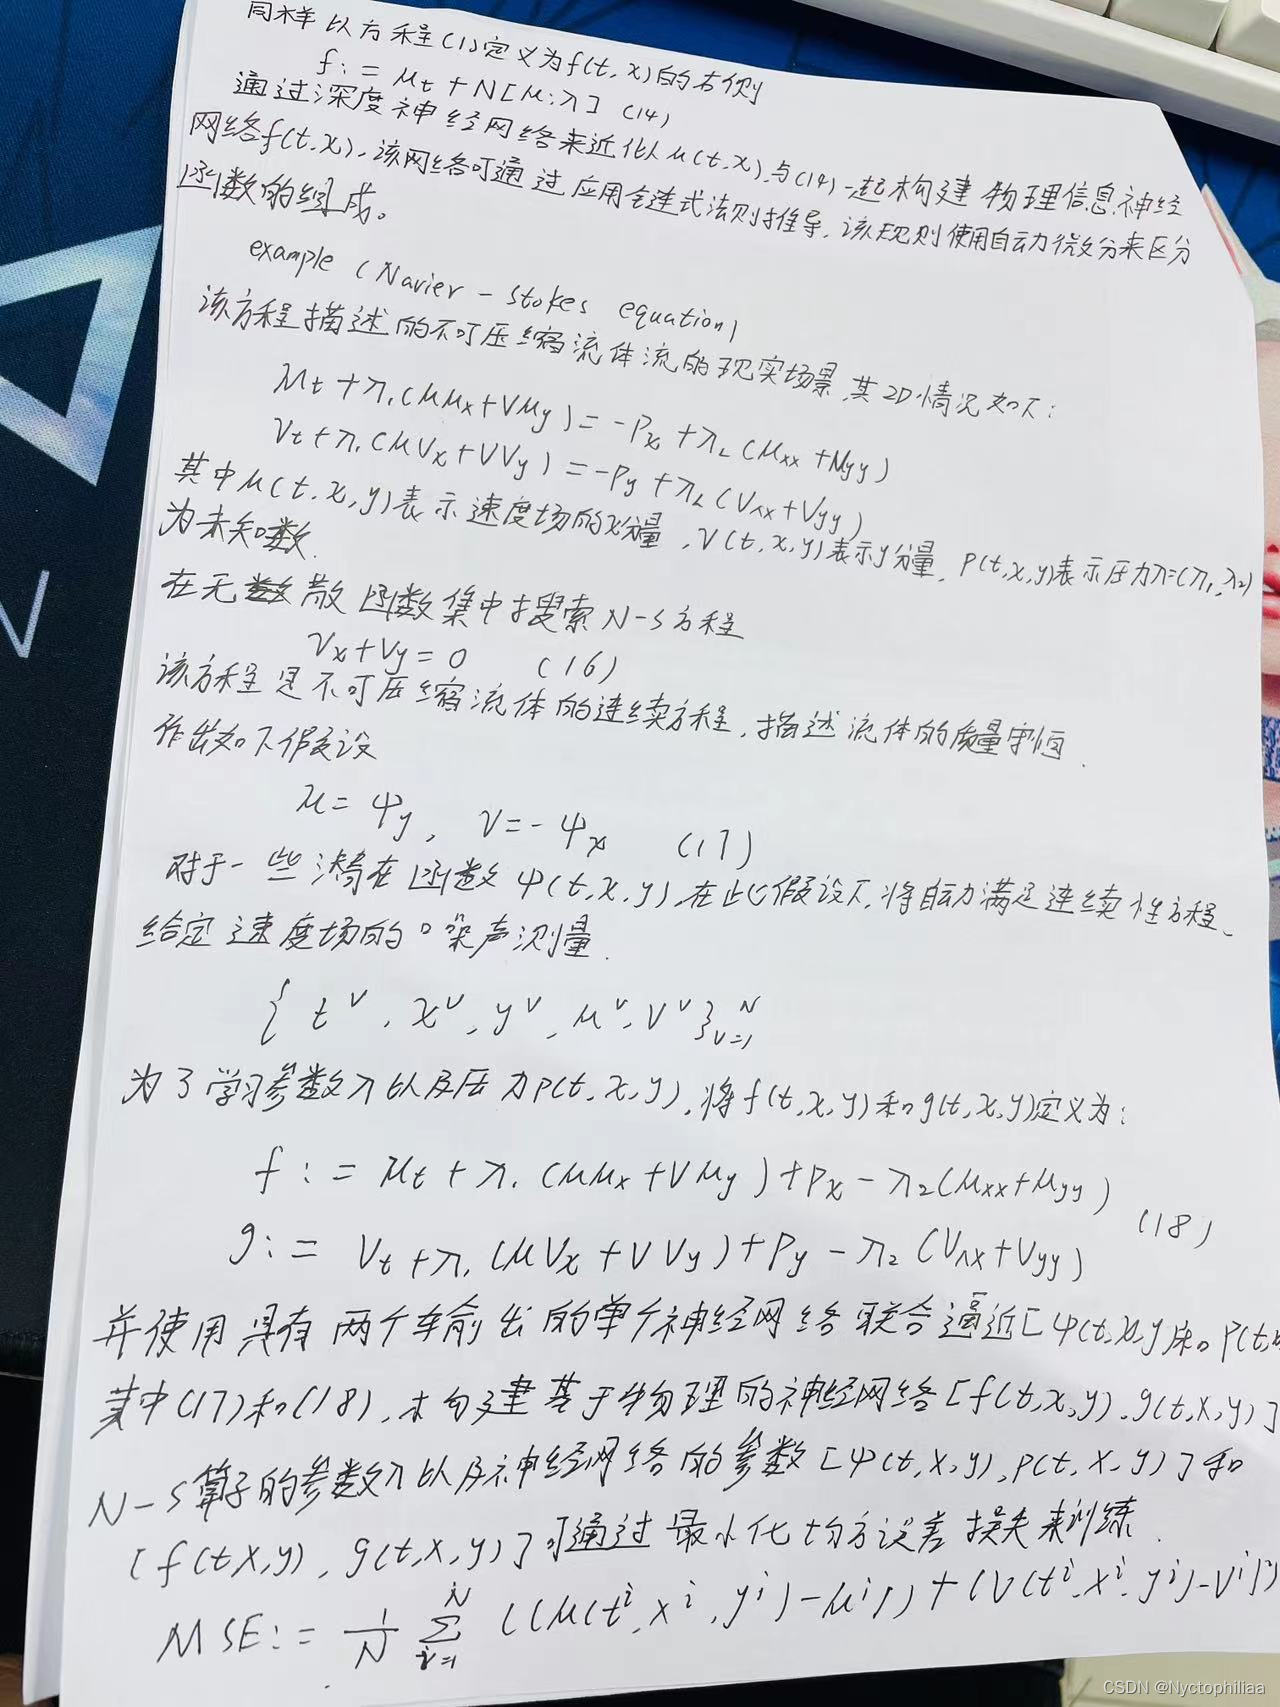 同样以方程(1)定义为f(t,x)的右侧
f:=μt+N[μ;λ] (14)
通过深度神经网络来近似μ(t,x),与(14)一起构建物理信息神经
网络f(t,x),该网络可通过应用链式法则推导,该规则使用自动微分来区分
函数的组成。
example (Navier-Stokes equation)
该方程描述的不可压缩流体流的现实场景,其2D情况如下:
μt+λ1(μμx+Vμy)=-Px+λ2(μxx+μyy)
Vt+λ1(μVx+VVy)=-Py+λ2(Vxx+Vyy)
其中μ(t,x,y)表示速度场的x分量,V(t,x,y)表示y分量,P(t,x,y)表示压力λ=(λ1,λ2)
为未知数.
在无散函数集中搜索N-S方程
Vx+Vy=0 (16)
该方程是不可压缩流体的连续方程,描述流体的质量守恒.
作出如下假设
μ=ψy, V=-ψx (17)
对于一些潜在函数ψ(t,x,y),在此假设下,将自动满足连续性方程、
给定速度场的噪声测量.
{t^v, x^v, y^v, μ^v, V^v}_{v=1}^N
为了学习参数λ以及压力P(t,x,y),将f(t,x,y)和g(t,x,y)定义为:
f:=μt+λ1(μμx+Vμy)+Px-λ2(μxx+μyy)
(18)
g:=Vt+λ1(μVx+VVy)+Py-λ2(Vxx+Vyy)
并使用具有两个输出的单个神经网络联合逼近[ψ(t,x,y)和P(t,
其中(17)和(18),构建基于物理的神经网络[f(t,x,y),g(t,x,y)]
N-S算子的参数λ以及神经网络的参数[ψ(t,x,y),P(t,x,y)]和
[f(t,x,y),g(t,x,y)]可通过最小化均方误差损失来训练.
MSE:=1/N Σ_{i=1}^N ((μ(t^i,x^i,y^i)-μ^i|)+(V(t^i,x^i,y^i)-V^i|
CSDN @Nyctophiliaa